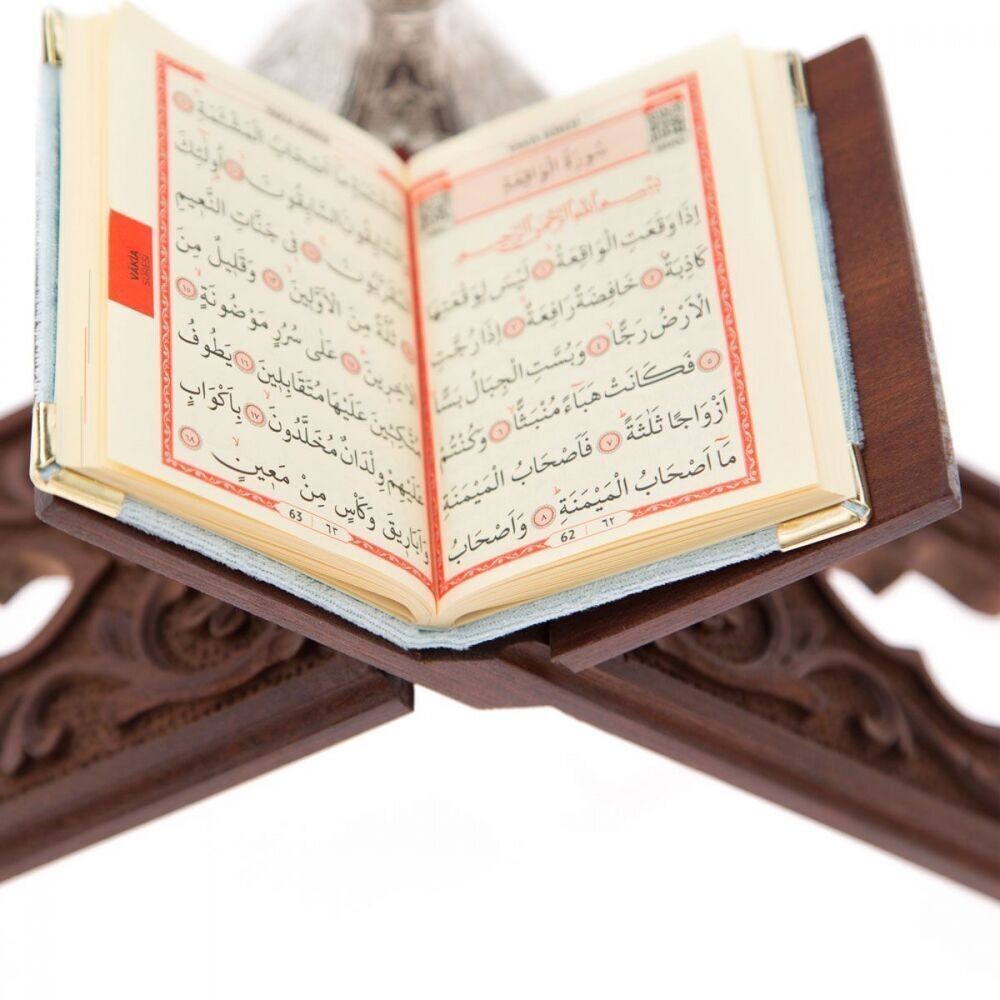 سُورَةُ الْوَاقِعَةِ
بِسْمِ اللّٰهِ الرَّحْمٰنِ الرَّحِيمِ
اِذَا وَقَعَتِ الْوَاقِعَةُۙ ﴿١﴾ لَيْسَ لِوَقْعَتِهَا
كَاذِبَةٌۢ ﴿٢﴾ خَافِضَةٌ رَافِعَةٌۙ ﴿٣﴾ اِذَا رُجَّتِ
الْاَرْضُ رَجًّاۙ ﴿٤﴾ وَبُسَّتِ الْجِبَالُ بَسًّاۙ
﴿٥﴾ فَكَانَتْ هَبَٓاءً مُنْبَثًّاۙ ﴿٦﴾ وَكُنْتُمْ
اَزْوَاجًا ثَلٰثَةًۜ ﴿٧﴾ فَاَصْحَابُ الْمَيْمَنَةِ
مَٓا اَصْحَابُ الْمَيْمَنَةِۜ ﴿٨﴾ وَاَصْحَابُ
62 | ٦٢
الْمَشْـَٔمَةِ مَٓا اَصْحَابُ الْمَشْـَٔمَةِۜ ﴿٩﴾
وَالسَّابِقُونَ السَّابِقُونَۙ ﴿١٠﴾ اُولٰٓئِكَ
الْمُقَرَّبُونَۚ ﴿١١﴾ فِي جَنَّاتِ النَّعِيمِ
﴿١٢﴾ ثُلَّةٌ مِنَ الْاَوَّلِينَۙ ﴿١٣﴾ وَقَلِيلٌ مِنَ
الْاٰخِرِينَۜ ﴿١٤﴾ عَلٰى سُرُرٍ مَوْضُونَةٍۙ ﴿١٥﴾
مُتَّكِـِٔينَ عَلَيْهَا مُتَقَابِلِينَ ﴿١٦﴾ يَطُوفُ
عَلَيْهِمْ وِلْدَانٌ مُخَلَّدُونَۙ ﴿١٧﴾ بِاَكْوَابٍ
وَاَبَارِيقَ وَكَأْسٍ مِنْ مَعِينٍۙ ﴿١٨﴾
63 | ٦٣
VÂKIA
SURESİ